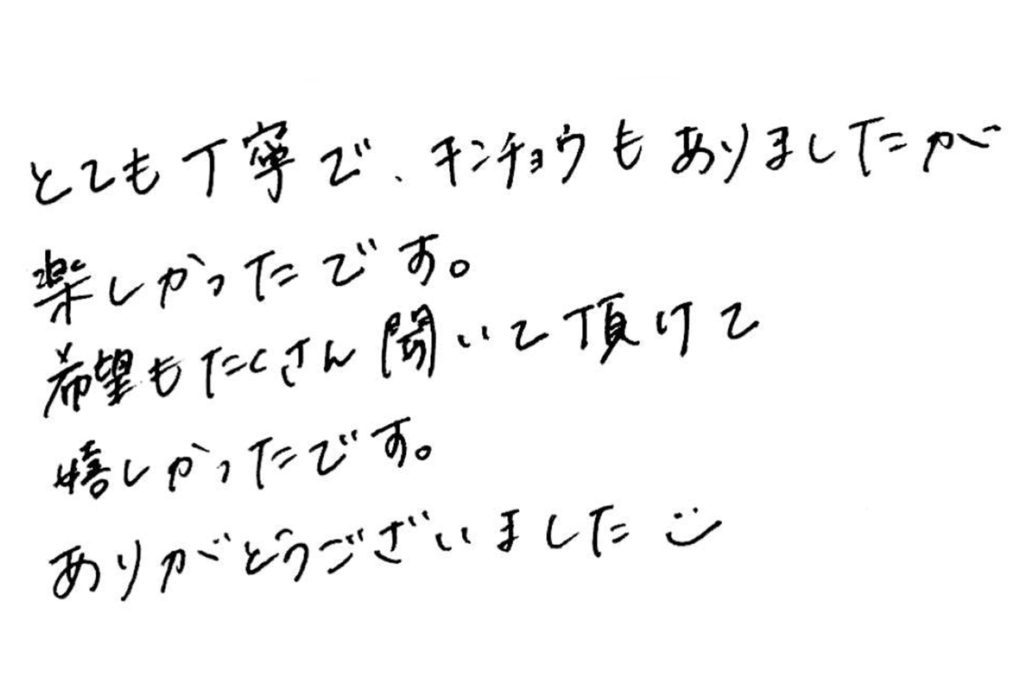 とても丁寧で、キンチョウもありましたが
楽しかったです。
希望もたくさん聞いて頂けて
嬉しかったです。
ありがとうございました